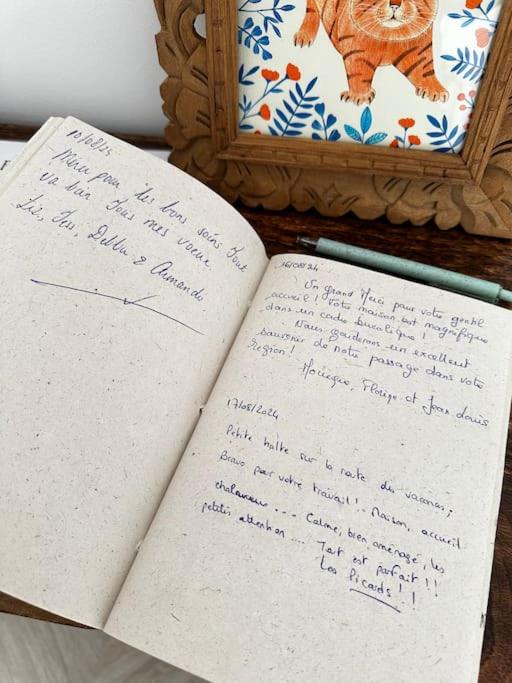 10/08/24
Merci pour les bons soins tout
va bien tous mes voeux
Liz, Tess, Debbie & Armando
16/08/24
Un grand Merci pour votre gentil
accueil ! Votre maison est magnifique
dans un cadre bucolique !
Nous garderons un excellent
souvenir de notre passage dans votre
région !
Monique, Florine et Jean Louis
17/08/2024
Petite halte sur la route des vacances,
Bravo pour votre travail ! Maison, accueil
chaleureux ... Calme, bien aménagé, les
petites attention .... Tout est parfait !!
Les Picards ! !